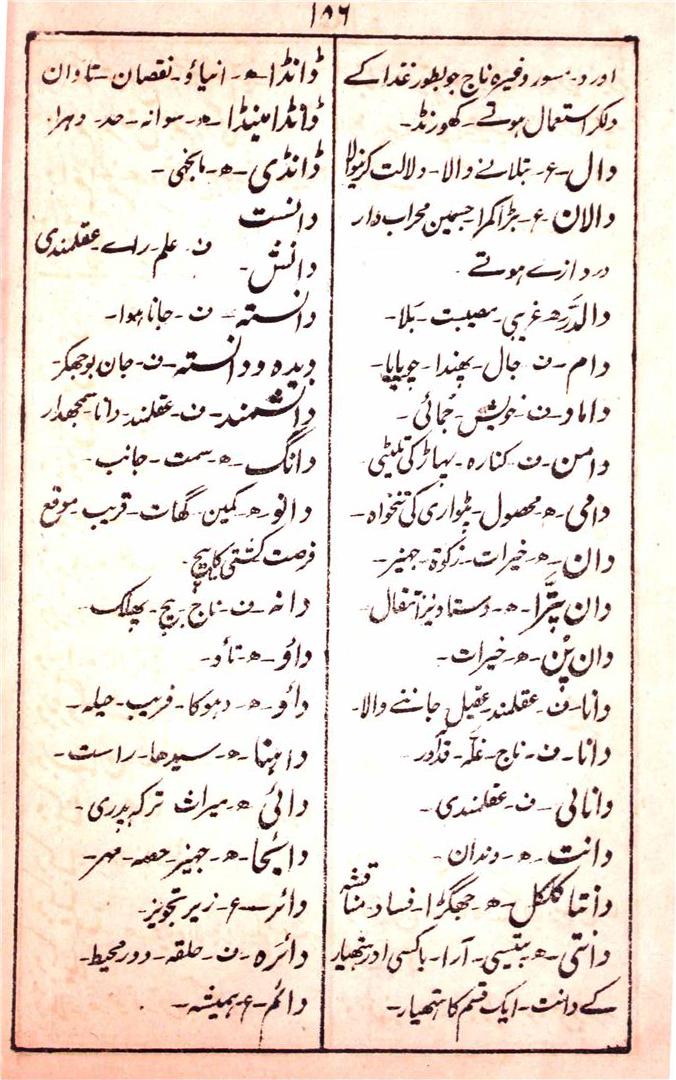 ۱۸۶
اور د۔ مسور وغیرہ ناج جو بطور غذا کے
دلکر استعمال ہوتے۔ کھورنڈ۔
دال۔ ع۔ بتلانے والا۔ دلالت کرنیوالا
دالان۔ ع۔ بڑا کمرا جسمین محراب دار
دروازے ہوتے۔
دالدّرھ غریبی۔ مصیبت۔ بَلا۔
دام۔ ف۔ جال۔ پھندا۔ چوپایا۔
داماد۔ ف۔ خویش۔ جُمائی۔
دامن۔ ف۔ کنارہ۔ پہاڑ کی تلیٹی
دامی۔ ھ۔ محصول۔ پٹواری کی تنخواہ۔
دان۔ ھ۔ خیرات۔ زکوٰة۔ جہیز۔
دان پتّرا۔ ھ۔ دستاویز انتقال
دان پُن۔ ھ۔ خیرات۔
دانا۔ ف۔ عقلمند۔ عقیل۔ جاننے والا۔
دانا۔ ف۔ ناج۔ غلّہ۔ قدآور۔
دانائی۔ ف۔ عقلمندی۔
دانت۔ ھ۔ دندان۔
دانتا کلکل۔ ھ۔ جھگڑا۔ فساد۔ مناقشہ
دانتی۔ ھ۔ بتیسی۔ آرا۔ یا کسی اور ہتھیار
کے دانت۔ ایک قسم کا ہتھیار۔
ڈانڈا۔ ھ۔ انیاؤ۔ نقصان۔ تاوان
ڈانڈا مینڈا۔ ھ۔ سوانہ۔ حد۔ دہرا۔
ڈانڈی۔ ھ۔ مانجھی۔
دانست
دانش۔ ف۔ علم۔ راے۔ عقلمندی
دانستہ۔ ف۔ جانا ہوا۔
دیدہ و دانستہ۔ ف۔ جان بوجھکر۔
دانشمند۔ ف۔ عقلمند۔ دانا۔ سمجھدار
دانگ۔ ھ۔ سمت۔ جانب۔
دانو۔ ھ۔ کمین۔ گھات۔ فریب۔ موقع
فرصت کشتی کا پیچ۔
دانہ۔ ف۔ ناج۔ بیج۔
داؤ۔ ھ۔ تاؤ۔
داؤ۔ ھ۔ دہوکا۔ فریب۔ حیلہ۔
داہنا۔ ھ۔ سیدھا۔ راست۔
دائی۔ ھ۔ میراث ترکہ پدری۔
دائجا۔ ھ۔ جہیز۔ حصہ۔ مہر۔
دائر۔ ع۔ زیر تجویز۔
دائرہ۔ ف۔ حلقہ۔ دور۔ محیط۔
دائم۔ ع۔ ہمیشہ۔